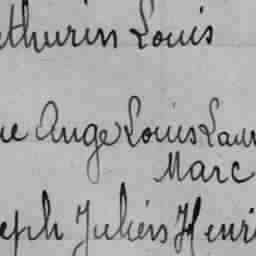 thurin Louis
Ange Louis Laur
Marc
eph Juliens Henri